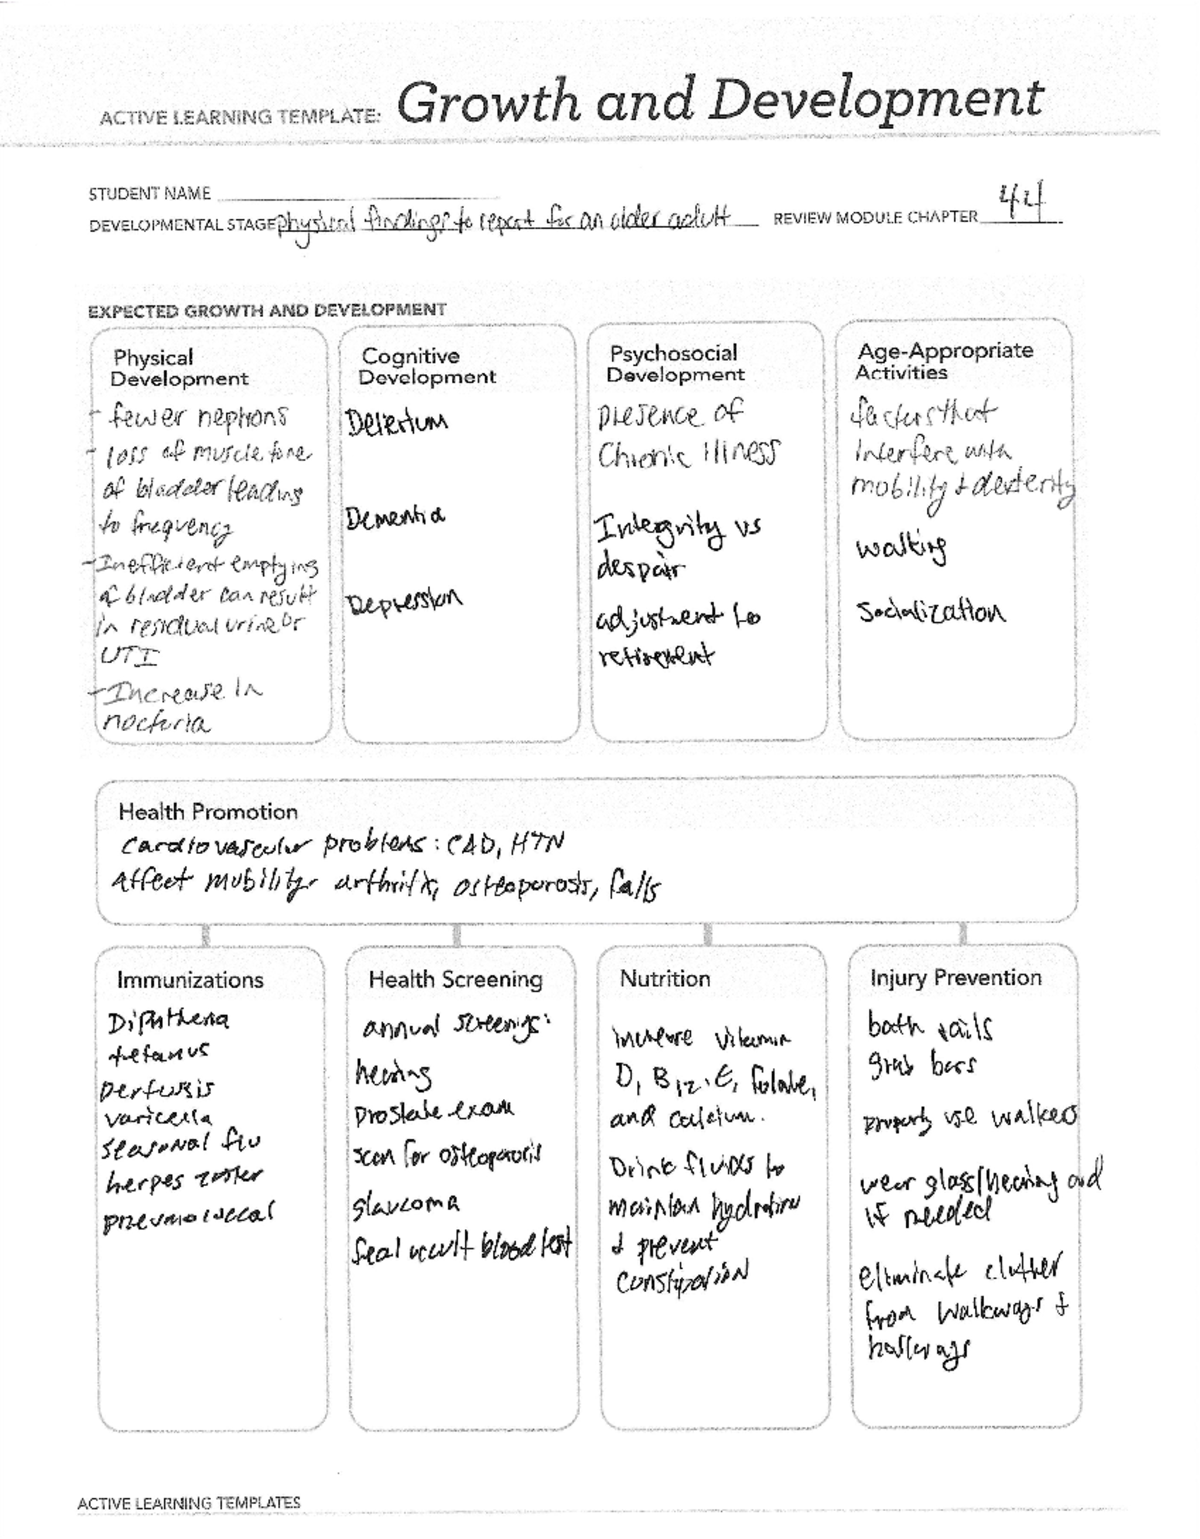 ACTIVE LEARNING TEMPLATE: Growth and Development
STUDENT NAME
DEVELOPMENTAL STAGE physical findings to report for an older adult REVIEW MODULE CHAPTER 44
EXPECTED GROWTH AND DEVELOPMENT
Physical
Development
- fewer nephrons
- loss of muscle tone
of bladder leading
to frequency
- Inefficient emptying
of bladder can result
in residual urine or
UTI
- Increase in
nocturia
Cognitive
Development
Delerium
Dementia
Depression
Psychosocial
Development
presence of
Chronic illness
Intergrity vs
despair
adjustment to
retirement
Age-Appropriate
Activities
factors that
interfere with
mobility & dexterity
walking
Socialization
Health Promotion
Cardiovascular problems: CAD, HTN
Affect mobility- arthritis, osteoporosis, falls
Immunizations
Diphtheria
tetanus
pertussis
varicella
seasonal flu
herpes zoster
pneumococcal
Health Screening
annual screenings:
hearing
prostate exam
scan for osteoporosis
glaucoma
fecal occult blood test
Nutrition
increase vitamin
D, B12, E, folate,
and calcium.
Drink fluids to
maintain hydration
& prevent
constipation
Injury Prevention
bath rails
grab bars
properly use walkers
wear glass/hearing aid
if needed
eliminate clutter
from walkways &
hallways
ACTIVE LEARNING TEMPLATES